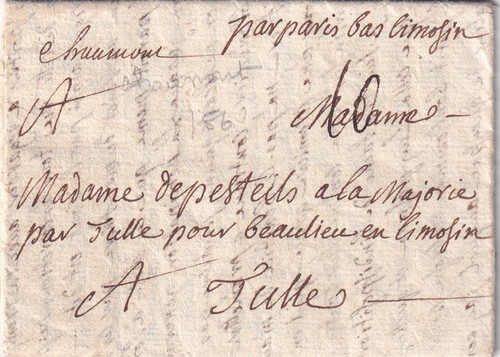 par paris bas limosin
chaumont
A Madame
Madame depesteils a la Majorie
par Tulle pour beaulieu en limosin
A Tulle